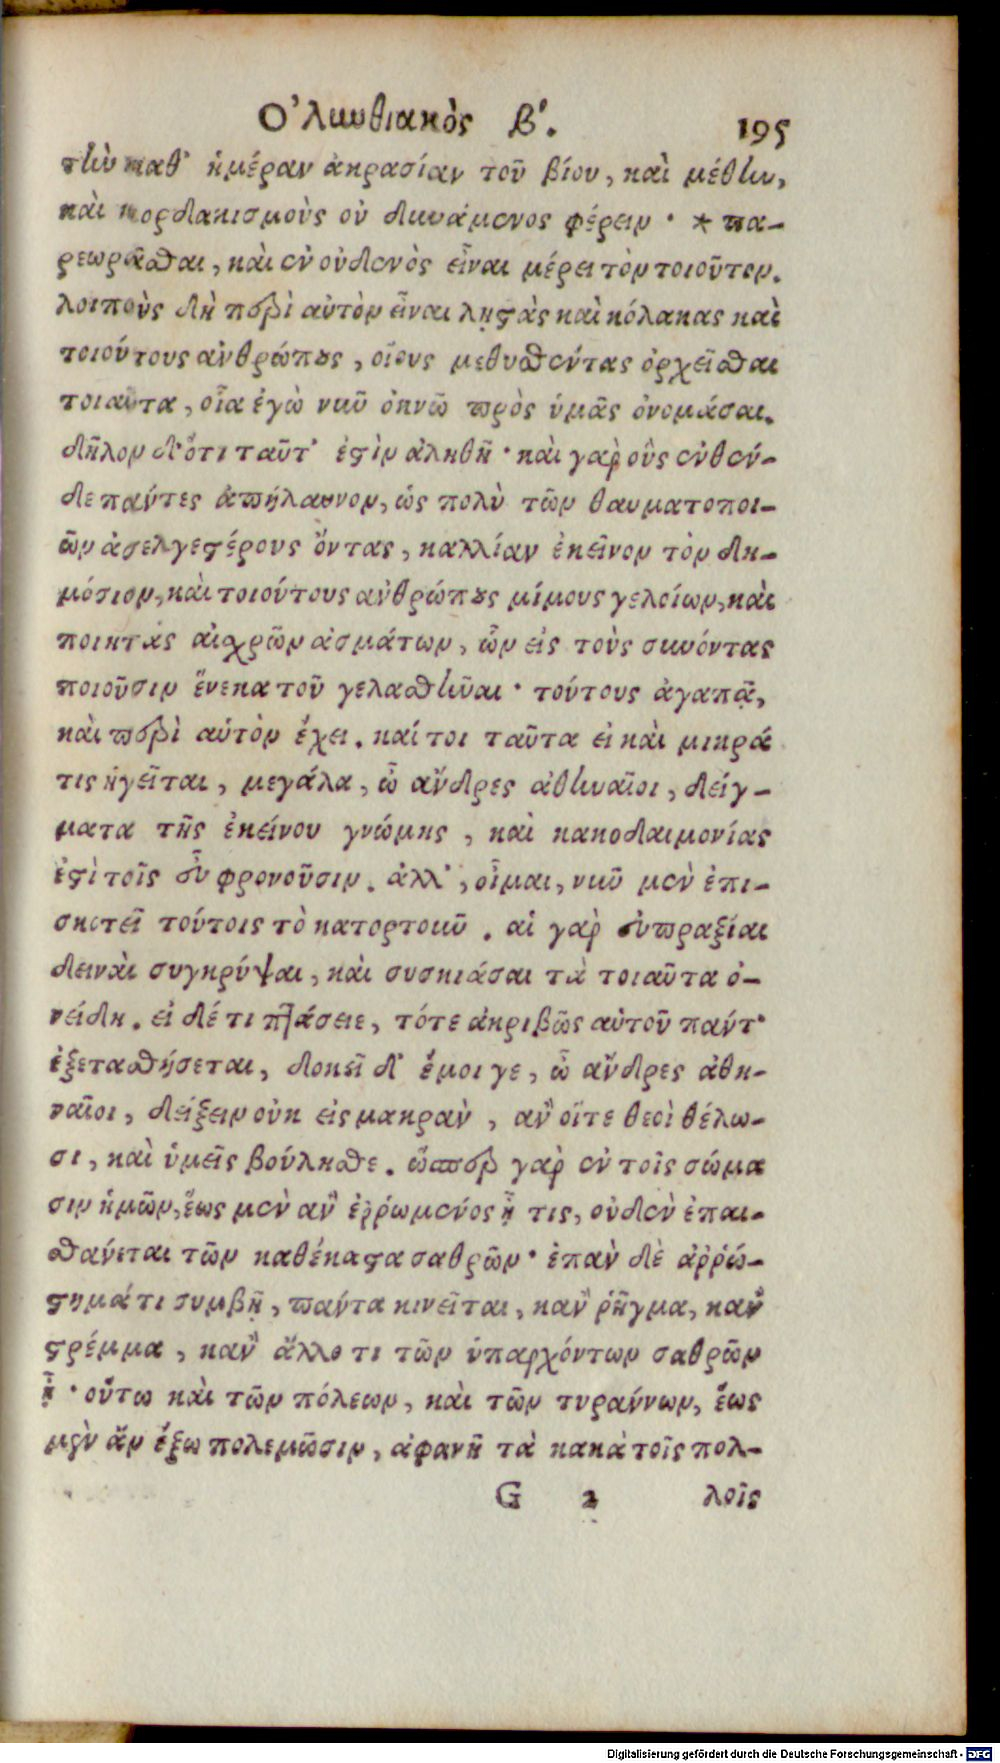 Ὀλυνθιακὸς β'. 195
τὴν καθ' ἡμέραν ἀκρασίαν τοῦ βίου, καὶ μέθην,
καὶ κορδακισμοὺς οὐ δυνάμενος φέρειν · * πα-
ρεωρᾶσθαι, καὶ ἐν οὐδενὸς εἶναι μέρει τὸν τοιοῦτον.
λοιποὺς δὴ περὶ αὐτὸν εἶναι ληστὰς καὶ κόλακας καὶ
τοιούτους ἀνθρώπους, οἵους μεθυσθέντας ὀρχεῖσθαι
τοιαῦτα, οἷα ἐγὼ νῦν ὀκνῶ πρὸς ὑμᾶς ὀνομάσαι.
δῆλον δ' ὅτι ταῦτ' ἐστὶν ἀληθῆ · καὶ γὰρ οὓς ἐνθέν-
δε πάντες ἀπήλαυνον, ὡς πολὺ τῶν θαυματοποι-
ῶν ἀσελγεστέρους ὄντας, καλλίαν ἐκεῖνον τὸν δη-
μόσιον, καὶ τοιούτους ἀνθρώπους μίμους γελοίων, καὶ
ποιητὰς αἰσχρῶν ἀσμάτων, ὧν εἰς τοὺς συνόντας
ποιοῦσιν ἕνεκα τοῦ γελασθῆναι · τούτους ἀγαπᾷ,
καὶ περὶ αὑτὸν ἔχει. καίτοι ταῦτα εἰ καὶ μικρά
τις ἡγεῖται, μεγάλα, ὦ ἄνδρες ἀθηναῖοι, δείγ-
ματα τῆς ἐκείνου γνώμης, καὶ κακοδαιμονίας
ἐστὶ τοῖς εὖ φρονοῦσιν. ἀλλ', οἶμαι, νῦν μὲν ἐπι-
σκοτεῖ τούτοις τὸ κατορτοῦν. αἱ γὰρ εὐπραξίαι
δειναὶ συγκρύψαι, καὶ συσκιάσαι τὰ τοιαῦτα ὀ-
νείδη. εἰ δέ τι πλάσειε, τότε ἀκριβῶς αὐτοῦ πάντ'
ἐξετασθήσεται, δοκεῖ δ' ἔμοι γε, ὦ ἄνδρες ἀθη-
ναῖοι, δείξειν οὐκ εἰς μακρὰν, ἂν οἵ τε θεοὶ θέλω-
σι, καὶ ὑμεῖς βούλησθε. ὥσπερ γὰρ ἐν τοῖς σώμα
σιν ἡμῶν, ἕως μὲν ἂν ἐῤῥωμένος ᾖ τις, οὐδὲν ἐπαι-
σθάνεται τῶν καθέκαστα σαθρῶν · ἐπὰν δὲ ἀῤῥώ-
στημά τι συμβῇ, πάντα κινεῖται, κἂν ῥῆγμα, κἂν
στρέμμα, κἂν ἄλλο τι τῶν ὑπαρχόντων σαθρῶν
ᾖ · οὕτω καὶ τῶν πόλεων, καὶ τῶν τυράννων, ἕως
μὲν ἂν ἔξω πολεμῶσιν, ἀφανῆ τὰ κακὰ τοῖς πολ-
G 2 λοῖς
Digitalisierung gefördert durch die Deutsche Forschungsgemeinschaft - DFG